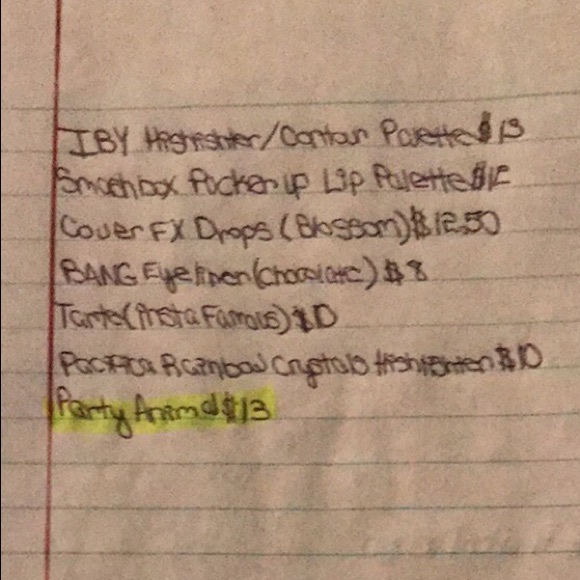 IBY Highlighter/Contour Palette $13
Smashbox Pucker up Lip Palette $12
Cover FX Drops (Blossom) $12.50
BANG Eyeliner (Chocolate) $8
Tarte (Insta Famous) $10
Pacifica Rainbow Crystals Highlighter $10
Party Animal $13